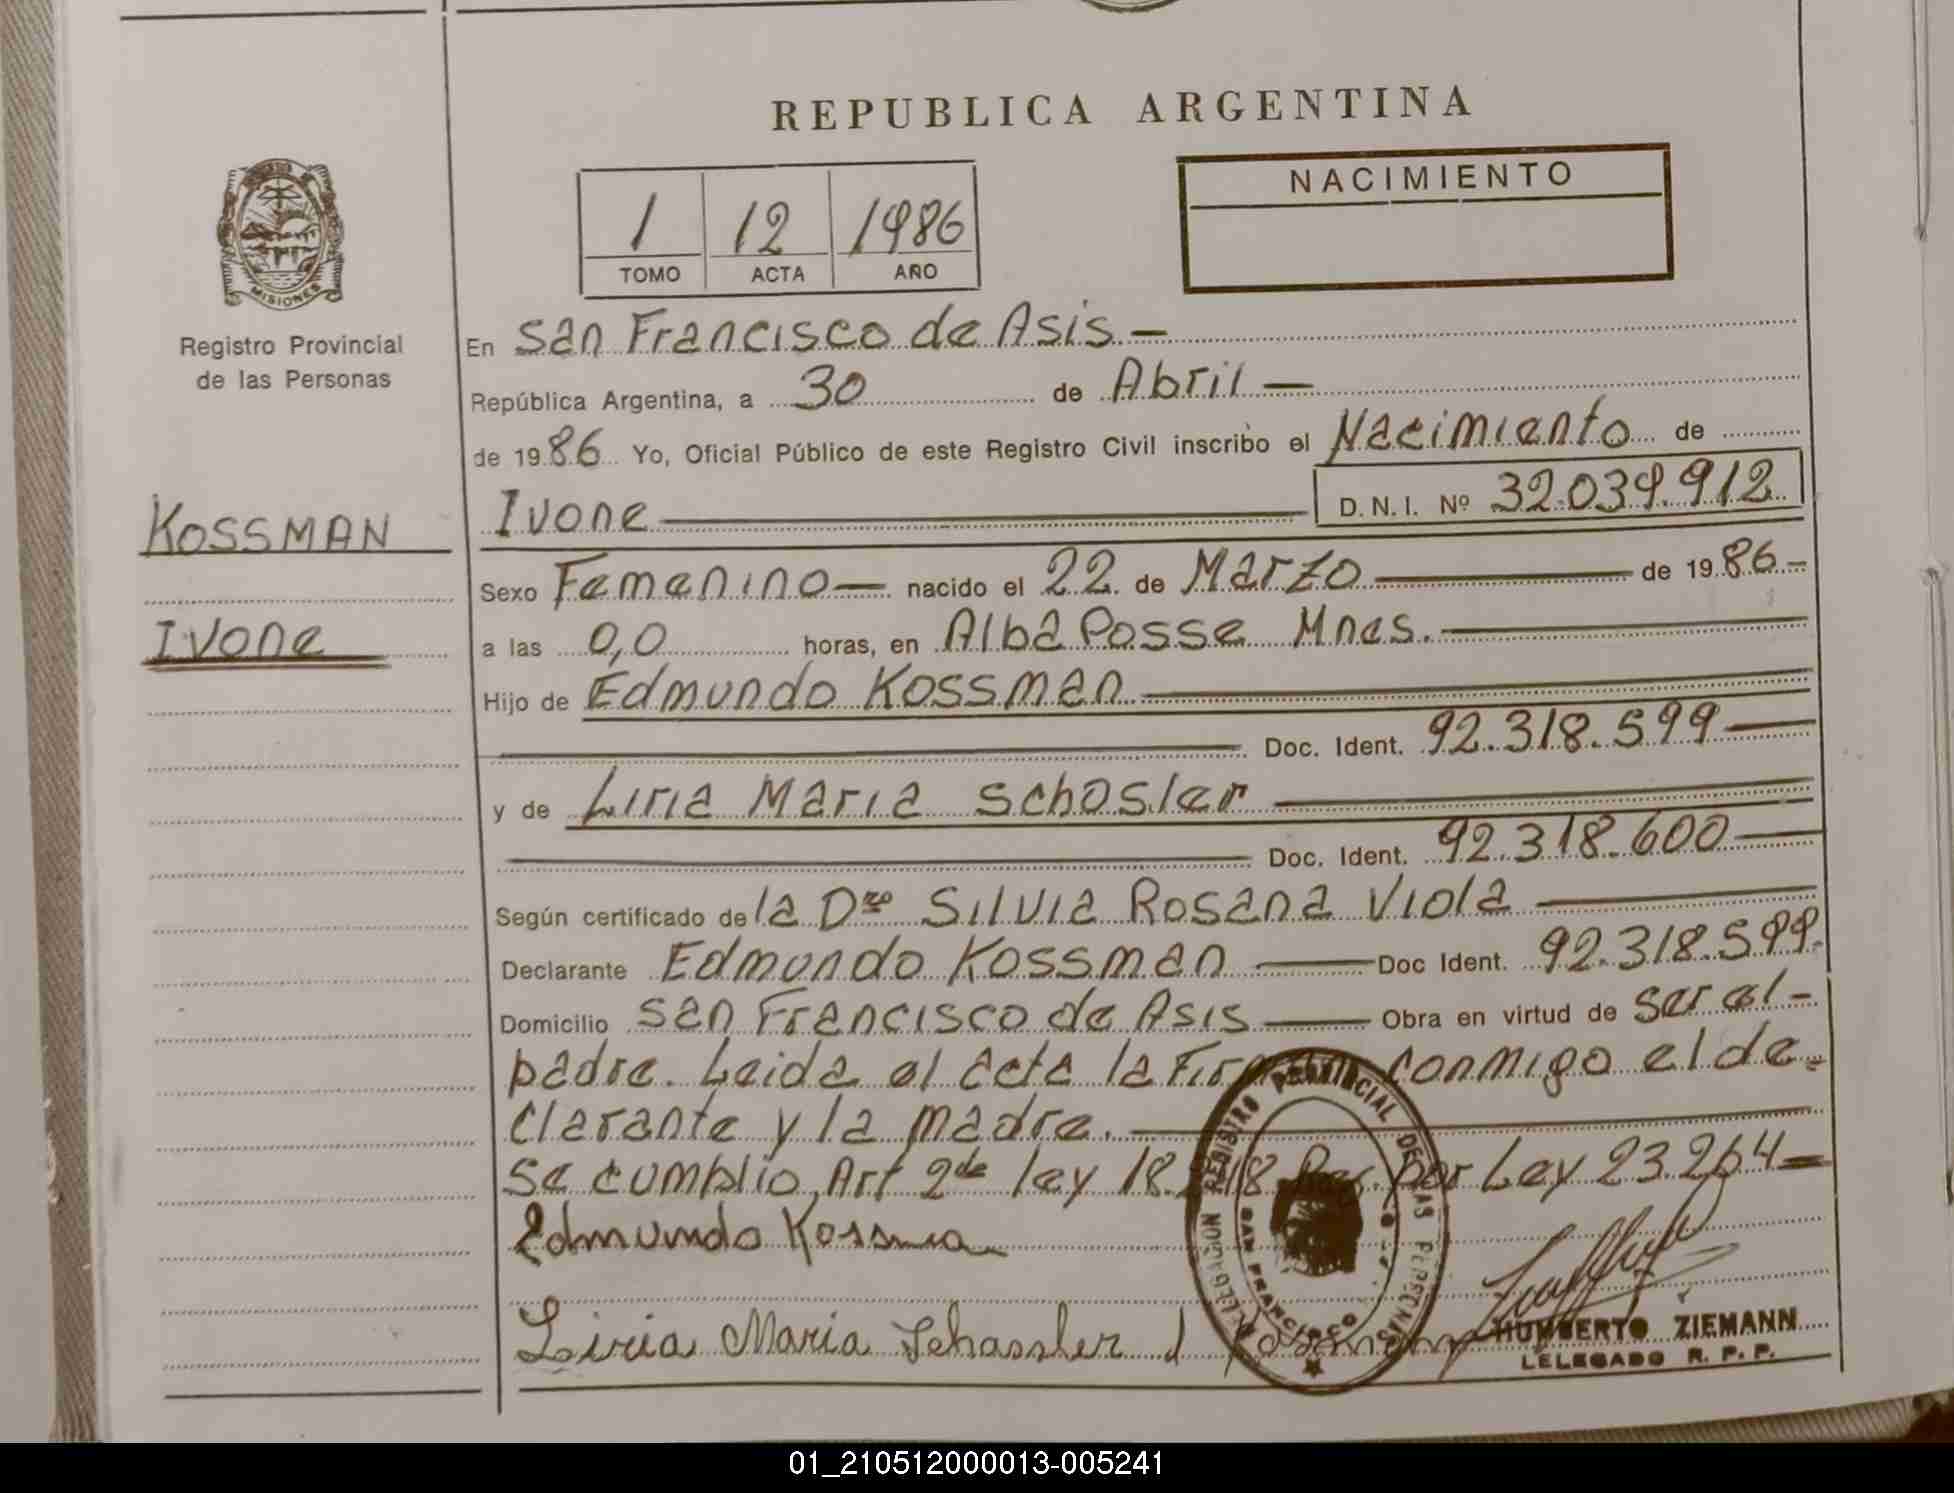 REPUBLICA ARGENTINA
NACIMIENTO
1 12 1986
TOMO ACTA AÑO
MISIONES
Registro Provincial
de las Personas
KOSSMAN
Ivone
En San Francisco de Asis.-
República Argentina, a 30 de Abril -
de 1986 Yo, Oficial Público de este Registro Civil inscribo el Nacimiento de
Ivone D.N.I. Nº 32.039.912
Sexo Femenino - nacido el 22 de Marzo de 1986-
a las 0,0 horas, en Alba Posse Mnes.
Hijo de Edmundo Kossman
Doc. Ident. 92.318.599
y de Liria Maria Schosler
Doc. Ident. 92.318.600
Según certificado de la Dra Silvia Rosana Viola
Declarante Edmundo Kossman Doc Ident. 92.318.599.
Domicilio San Francisco de Asis Obra en virtud de ser el-
padre. Leida el acta la conmigo el de-
clarante y la madre.
Se cumplio Art 2de ley por Ley 23.264-
Edmundo Kossman
Liria Maria Schassler
DELEGACION REGISTRO PROVINCIAL DE LAS PERSONAS
SAN FRANCISCO
HUMBERTO ZIEMANN
LELEGADO R. P. P.
01_210512000013-005241